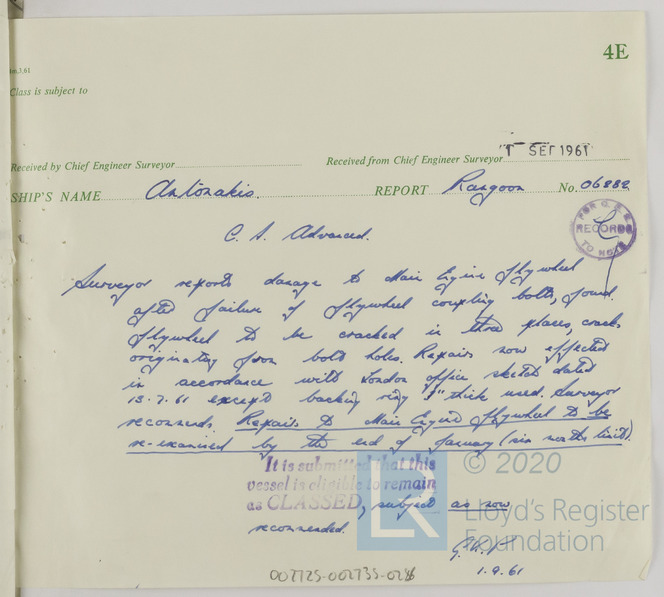 4E
m.1.61
Class is subject to
Received by Chief Engineer Surveyor
Received from Chief Engineer Surveyor 1 SEP 1961
SHIP'S NAME Antonakis. REPORT Rangoon No. 06882
RECORDS
TO NOTE
C. S. Advanced.
Surveyor reports damage to Main Engine flywheel
after failure of flywheel coupling bolts, found
flywheel to be cracked in three places, cracks
originating from bolt holes. Repairs now effected
in accordance with London office sketch dated
13.7.61 except backing ring 1" thick used. Surveyor
recommends, Repairs to Main Engine flywheel to be
re-examined by the end of January (six months limit).
It is submitted that this
vessel is eligible to remain
as CLASSED, subject as now
recommended.
1.9.61
002725-002735-0216
LR
© 2020
Lloyd's Register
Foundation